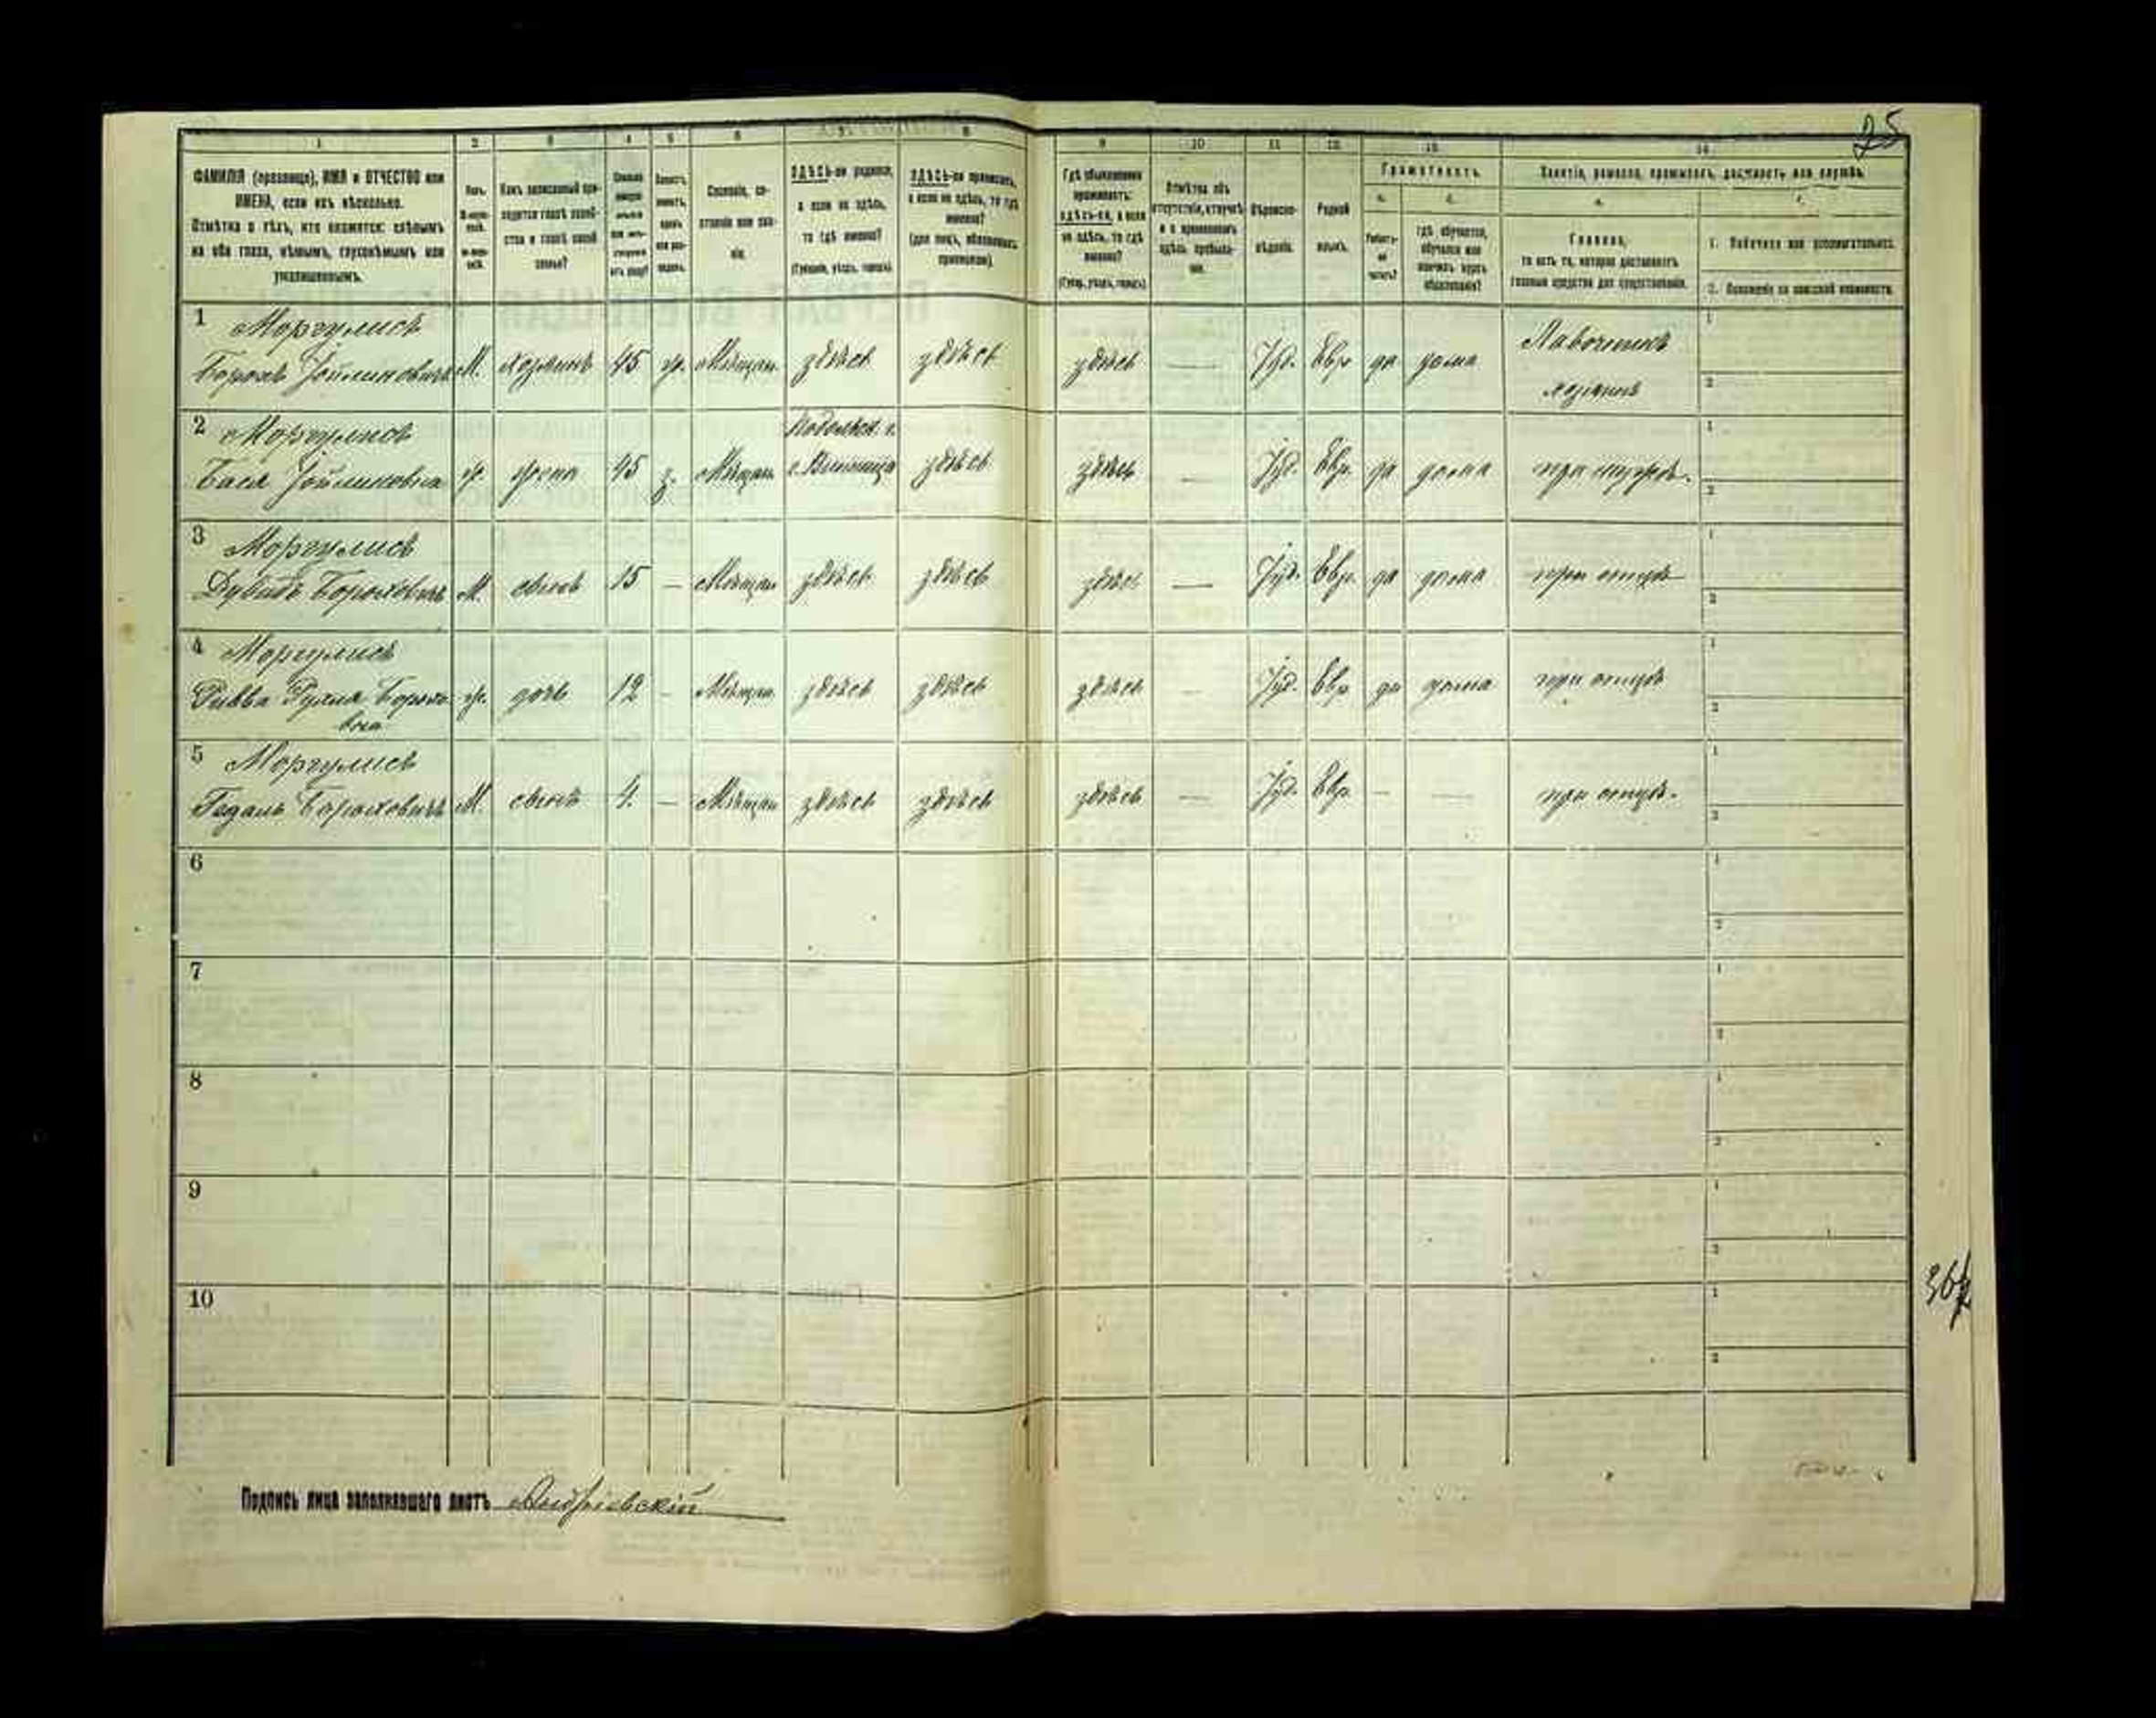 25
1 2 3 4 5 6 7 8 9 10 11 12 13 14
ФАМИЛІЯ (прозвище), ИМЯ и ОТЧЕСТВО или
ИМЕНА, если ихъ нѣсколько.
Отмѣтка о тѣхъ, кто окажется: слѣпымъ
на оба глаза, нѣмымъ, глухонѣмымъ или
умалишеннымъ.
Какъ записанный при-
ходится главѣ хозяй-
ства и главѣ своей
семьи?
Сословіе, со-
стояніе или зва-
ніе.
ЗДѢСЬ-ли родился,
а если не здѣсь,
то гдѣ именно?
(Губернія, уѣздъ, городъ).
ЗДѢСЬ-ли приписанъ,
а если не здѣсь, то гдѣ
именно?
(для лицъ, обязанныхъ
припискою).
Гдѣ обыкновенно
проживаетъ:
здѣсь-ли, а если
не здѣсь, то гдѣ
именно?
(Губер., уѣздъ, городъ).
Отмѣтка объ
отсутствіи, отлучкѣ
и о временномъ
здѣсь пребыва-
ніи.
Вѣроиспо-
вѣданіе.
Родной
языкъ.
Грамотность.
а. б.
Умѣетъ-
ли
читать?
гдѣ обучается,
обучался или
кончилъ курсъ
образованія?
Занятіе, ремесло, промыселъ, должность или служба.
Главное,
то есть то, которое доставляетъ
главныя средства для существованія.
1. Побочное или вспомогательное.
2. Положеніе по воинской повинности.
1 Моргулисъ
Борохъ Іойлиновичъ М. хозяинъ 45 ж. Мѣщан. здѣсь здѣсь здѣсь — Іуд. Евр да дома Лавочникъ
хозяинъ
2 Моргулисъ Подольск. г.
Бася Іойлиновна ж. жена 45 з. Мѣщан г. Винница здѣсь здѣсь Іуд. Евр. да дома при мужѣ.
3 Моргулисъ
Дувидъ Боруховичъ М. сынъ 15 — Мѣщан здѣсь здѣсь здѣсь — Іуд. Евр. да дома при отцѣ
4 Моргулисъ
Ривва Рухля Борохо ж. дочь 12 - Мѣщан здѣсь здѣсь здѣсь — Іуд. Евр да дома при отцѣ
вна
5 Моргулисъ
Гедаль Боруховичъ М. сынъ 4. — Мѣщан здѣсь здѣсь здѣсь — Іуд. Евр. — — при отцѣ.
6
7
8
9
10
Подпись лица заполнявшаго листъ Андріевскій